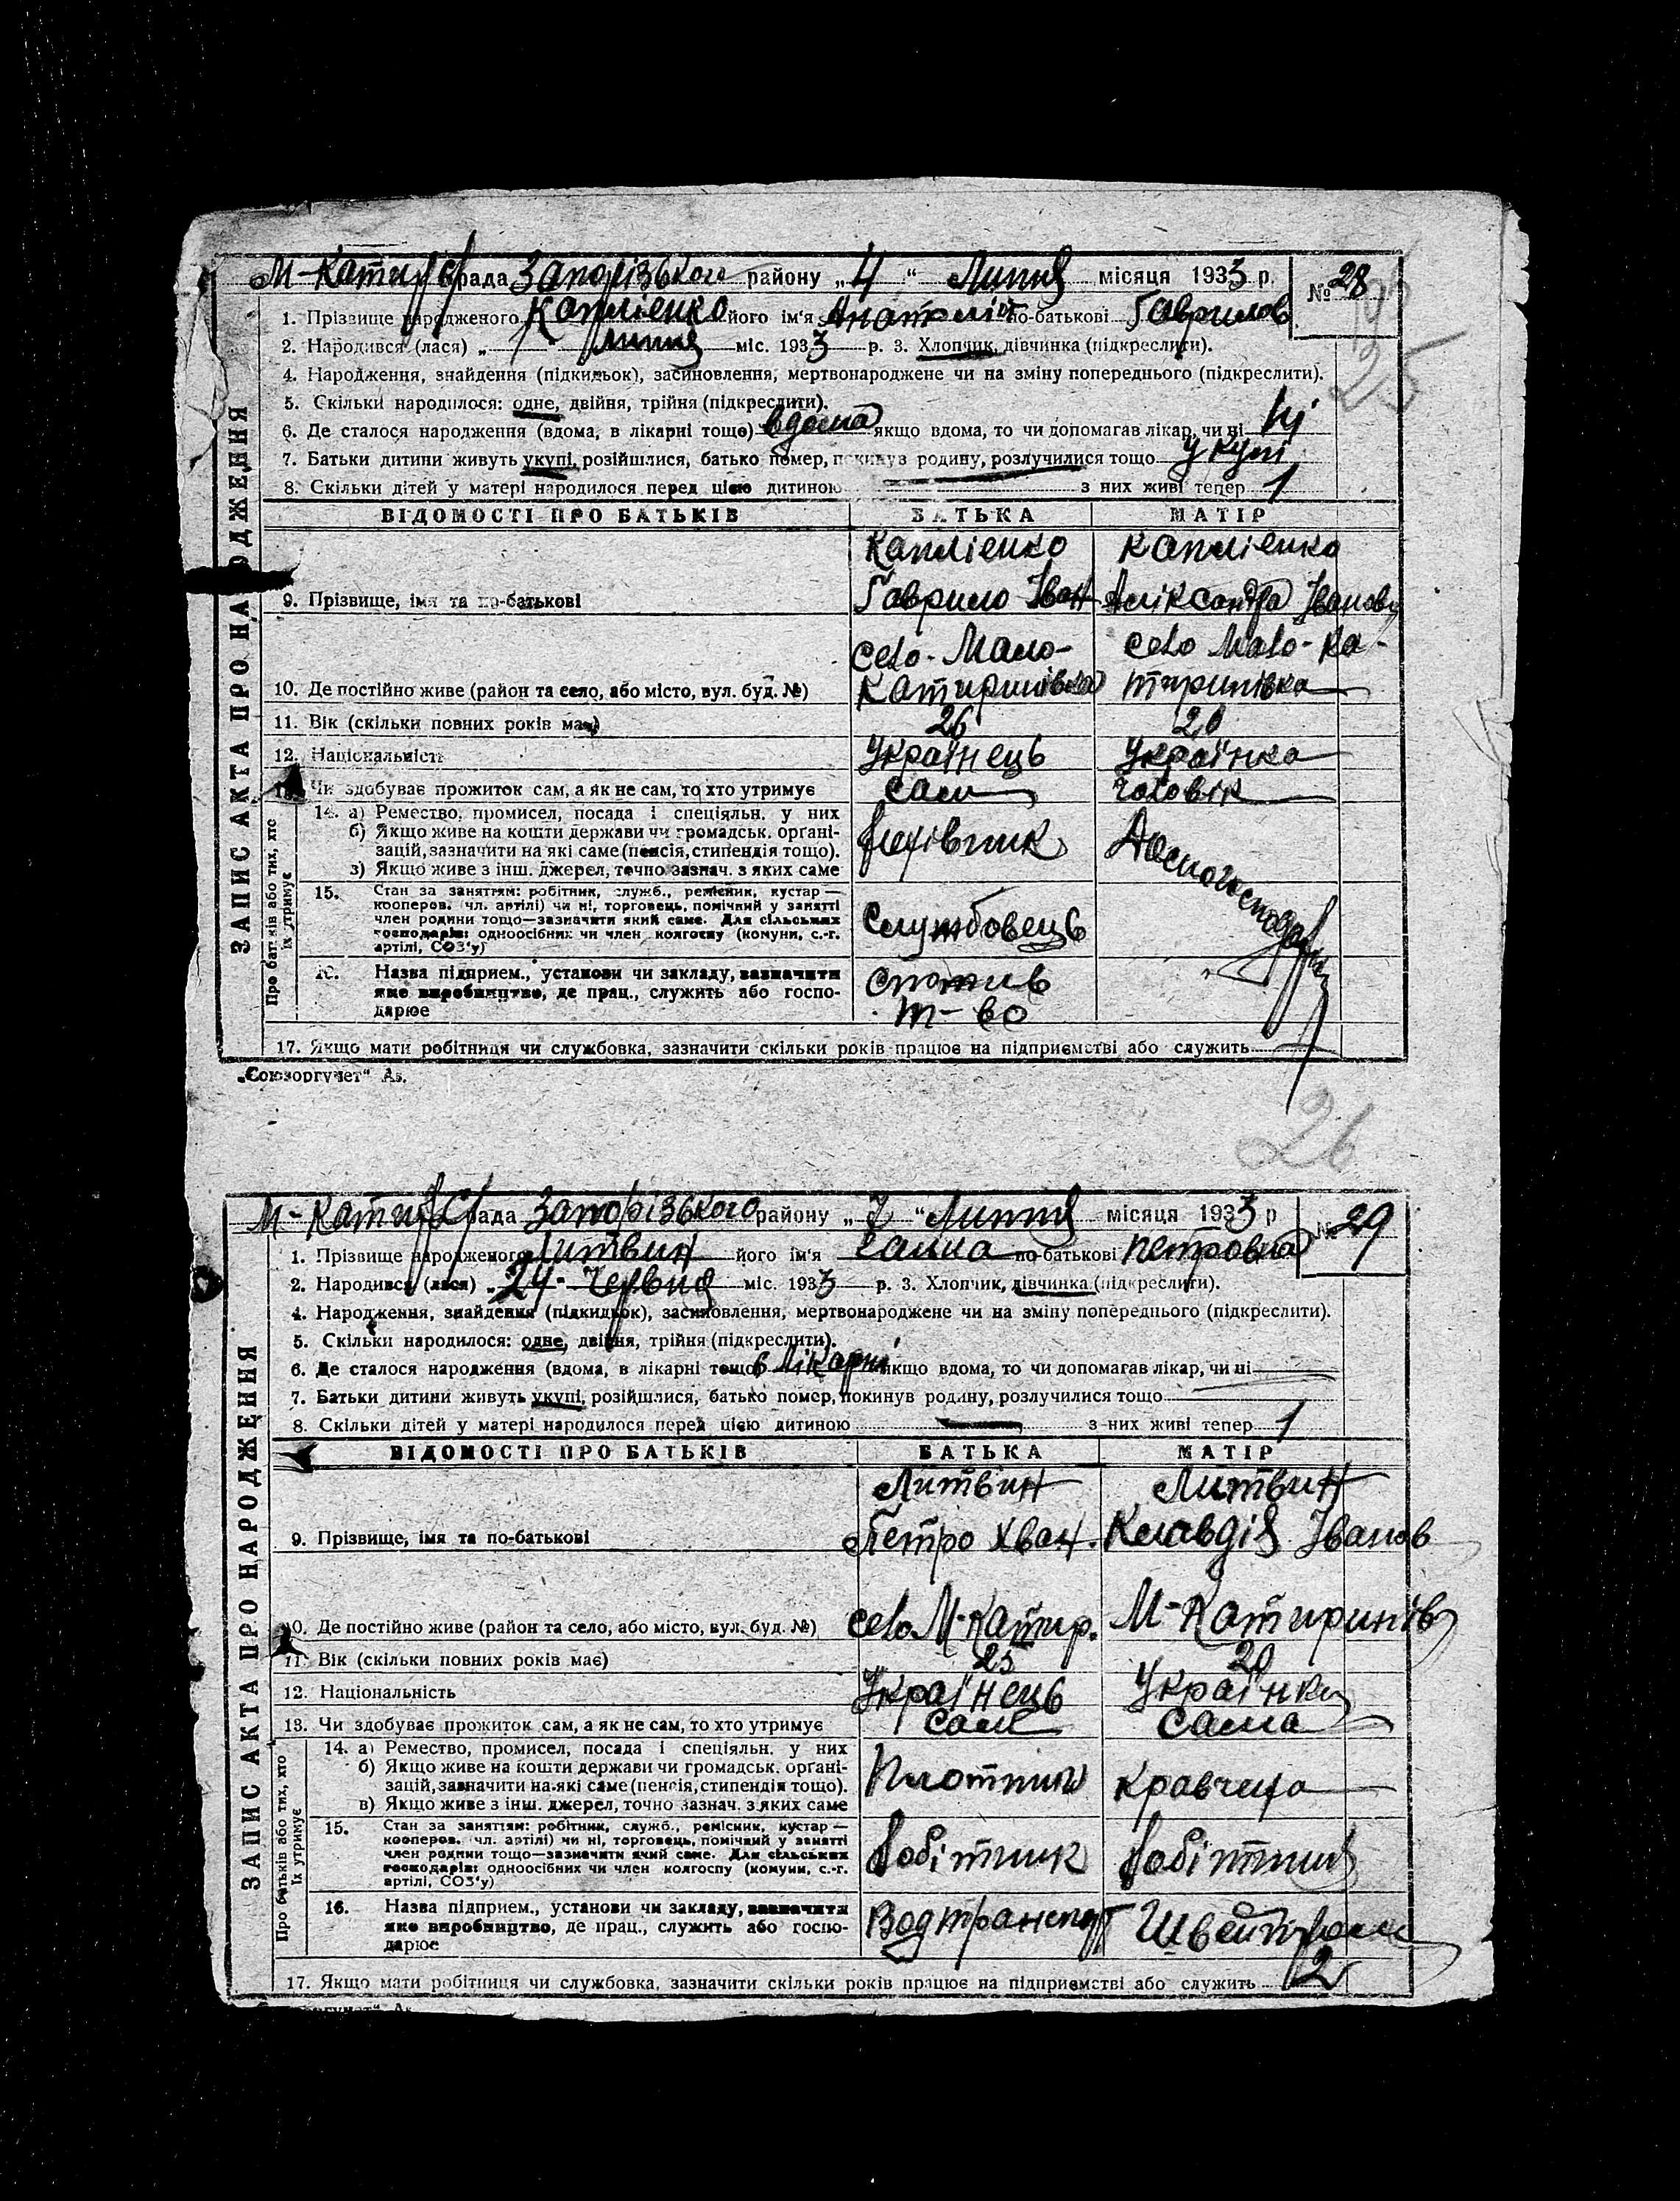 ЗАПИС АКТА ПРО НАРОДЖЕННЯ
М-Катир с/рада Запорізького району „4“ Липня місяця 1933 р. № 28
25
1. Прізвище народженого Капліенко його ім'я Анатолій по-батькові Гаврилов
2. Народився (лася) „1 липня міс. 1933 р. 3. Хлопчик, дівчинка (підкреслити).
4. Народження, знайдення (підкидьок), засиновлення, мертвонароджене чи на зміну попереднього (підкреслити).
5. Скільки народилося: одне, двійня, трійня (підкреслити).
6. Де сталося народження (вдома, в лікарні тощо) вдома якщо вдома, то чи допомагав лікар, чи ні ні
7. Батьки дитини живуть укупі, розійшлися, батько помер, покинув родину, розлучилися тощо укупі
8. Скільки дітей у матері народилося перед цією дитиною з них живі тепер 1
ВІДОМОСТІ ПРО БАТЬКІВ БАТЬКА МАТІР
Капліенко Капліенко
9. Прізвище, імя та по-батькові Гаврило Іван Аліксандра Іванов
село-Мало- село Мало-Ка-
10. Де постійно живе (район та село, або місто, вул. буд. №) Катиринівка тиринівка
11. Вік (скільки повних років має) 26 20
12. Національність Українець Українка
13. Чи здобуває прожиток сам, а як не сам, то хто утримує сам чоловік
Про батьків або тих, хто їх утримує
14. а) Ремество, промисел, посада і спеціяльн. у них
б) Якщо живе на кошти держави чи громадськ. орґані-
зацій, зазначити на які саме (пенсія, стипендія тощо).
в) Якщо живе з інш. джерел, точно зазнач. з яких саме
Домогосподарка
15. Стан за заняттям: робітник, служб., ремісник, кустар —
кооперов. чл. артілі) чи ні, торговець, помічний у занятті
член родини тощо—зазначити який саме. Для сільських
господарів: одноосібних чи член колгоспу (комуни, с.-г.
артілі, СОЗ'у)
Службовець
16. Назва підприєм., установи чи закладу, зазначити
яке виробництво, де прац., служить або госпо-
дарює
Спожив
т-во
17. Якщо мати робітниця чи службовка, зазначити скільки років працює на підприємстві або служить
„Союзоргучет“
26
ЗАПИС АКТА ПРО НАРОДЖЕННЯ
М-Катир с/рада Запорізького району „7“ Липня місяця 1933 р № 29
1. Прізвище народженого Литвин його ім'я Галина по-батькові Петровна
2. Народився (лася) „24 Червня міс. 1933 р. 3. Хлопчик, дівчинка (підкреслити).
4. Народження, знайдення (підкидьок), засиновлення, мертвонароджене чи на зміну попереднього (підкреслити).
5. Скільки народилося: одне, двійня, трійня (підкреслити).
6. Де сталося народження (вдома, в лікарні тощо) в лікарні якщо вдома, то чи допомагав лікар, чи ні
7. Батьки дитини живуть укупі, розійшлися, батько помер, покинув родину, розлучилися тощо
8. Скільки дітей у матері народилося перед цією дитиною — з них живі тепер 1
ВІДОМОСТІ ПРО БАТЬКІВ БАТЬКА МАТІР
Литвин Литвин
9. Прізвище, імя та по-батькові Петро Іван. Клавдія Іванов
10. Де постійно живе (район та село, або місто, вул. буд. №) село М-Катир. М-Катиринів
11. Вік (скільки повних років має) 25 20
12. Національність Українець Українка
13. Чи здобуває прожиток сам, а як не сам, то хто утримує сам сама
Про батьків або тих, хто їх утримує
14. а) Ремество, промисел, посада і спеціяльн. у них
б) Якщо живе на кошти держави чи громадськ. орґані-
зацій, зазначити на які саме (пенсія, стипендія тощо).
в) Якщо живе з інш. джерел, точно зазнач. з яких саме
Плотник кравчиха
15. Стан за заняттям: робітник, служб., ремісник, кустар —
кооперов. чл. артілі) чи ні, торговець, помічний у занятті
член родини тощо—зазначити який саме. Для сільських
господарів: одноосібних чи член колгоспу (комуни, с.-г.
артілі, СОЗ'у)
Робітник Робітниця
16. Назва підприєм., установи чи закладу, зазначити
яке виробництво, де прац., служить або госпо-
дарює
Водтранспорт Швейпром
17. Якщо мати робітниця чи службовка, зазначити скільки років працює на підприємстві або служить 2